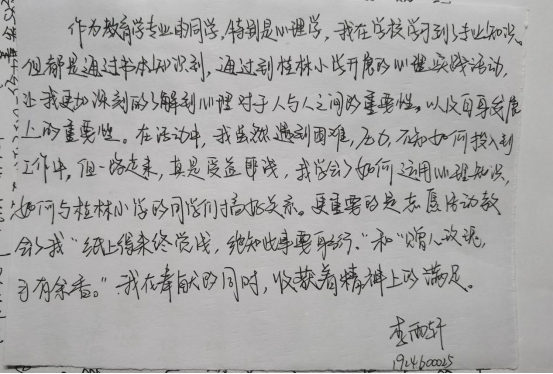 作为教育学专业的同学,特别是心理学,我在学校学习到专业知识。
但都是通过书本知识到,通过到桂林小学开展的心理实践活动,
让我更加深刻的了解到心理对于人与人之间的重要性。以及自身发展
上的重要性。在活动中,我虽然遇到困难,压力,不知如何投入到
工作中,但一路走来,真是受益匪浅,我学会了如何运用心理知识,
如何与桂林小学的同学们搞好关系。更重要的是志愿活动教
会了我“纸上得来终觉浅,绝知此事要躬行。”和“赠人玫瑰,
手有余香。”我在奉献的同时,收获着精神上的满足。
李雨轩
1924600025